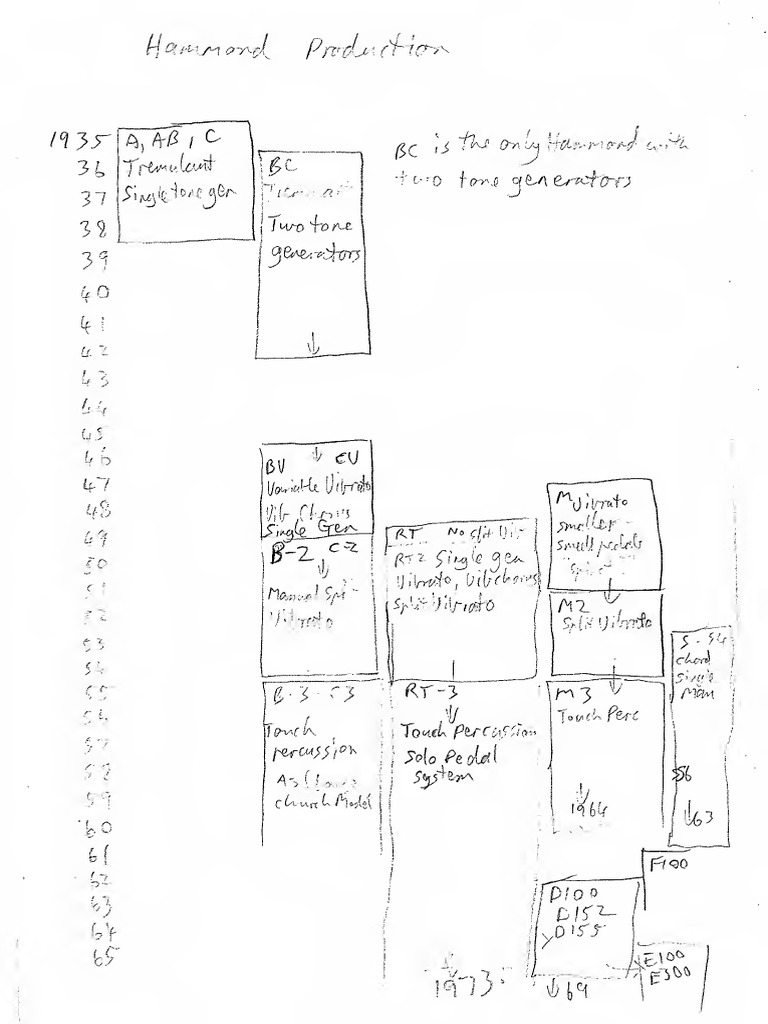 Hammond Production
1935
36
37
38
39
40
41
42
43
44
45
46
47
48
49
50
51
52
53
54
55
56
57
58
59
60
61
62
63
64
65
A, AB, C
Tremulant
Single tone gen
BC
Two tone
generators
BC is the only Hammond with
two tone generators
BV CV
Variable Vibrato
Vib Chorus
Single Gen
B-2 C-2
Manual Split
Vibrato
B-3 C3
Touch
percussion
church Model
RT No Split Vib
RT2 Single gen
Vibrato, Vib chorus
Split Vibrato
RT-3
Touch Percussion
Solo Pedal
system
1973
M Vibrato
smaller
small pedals
M2
Split Vibrato
M3
Touch Perc
1964
S-54
chord
single
Man
56
63
F100
D100
D152
D155
69
E100
E300